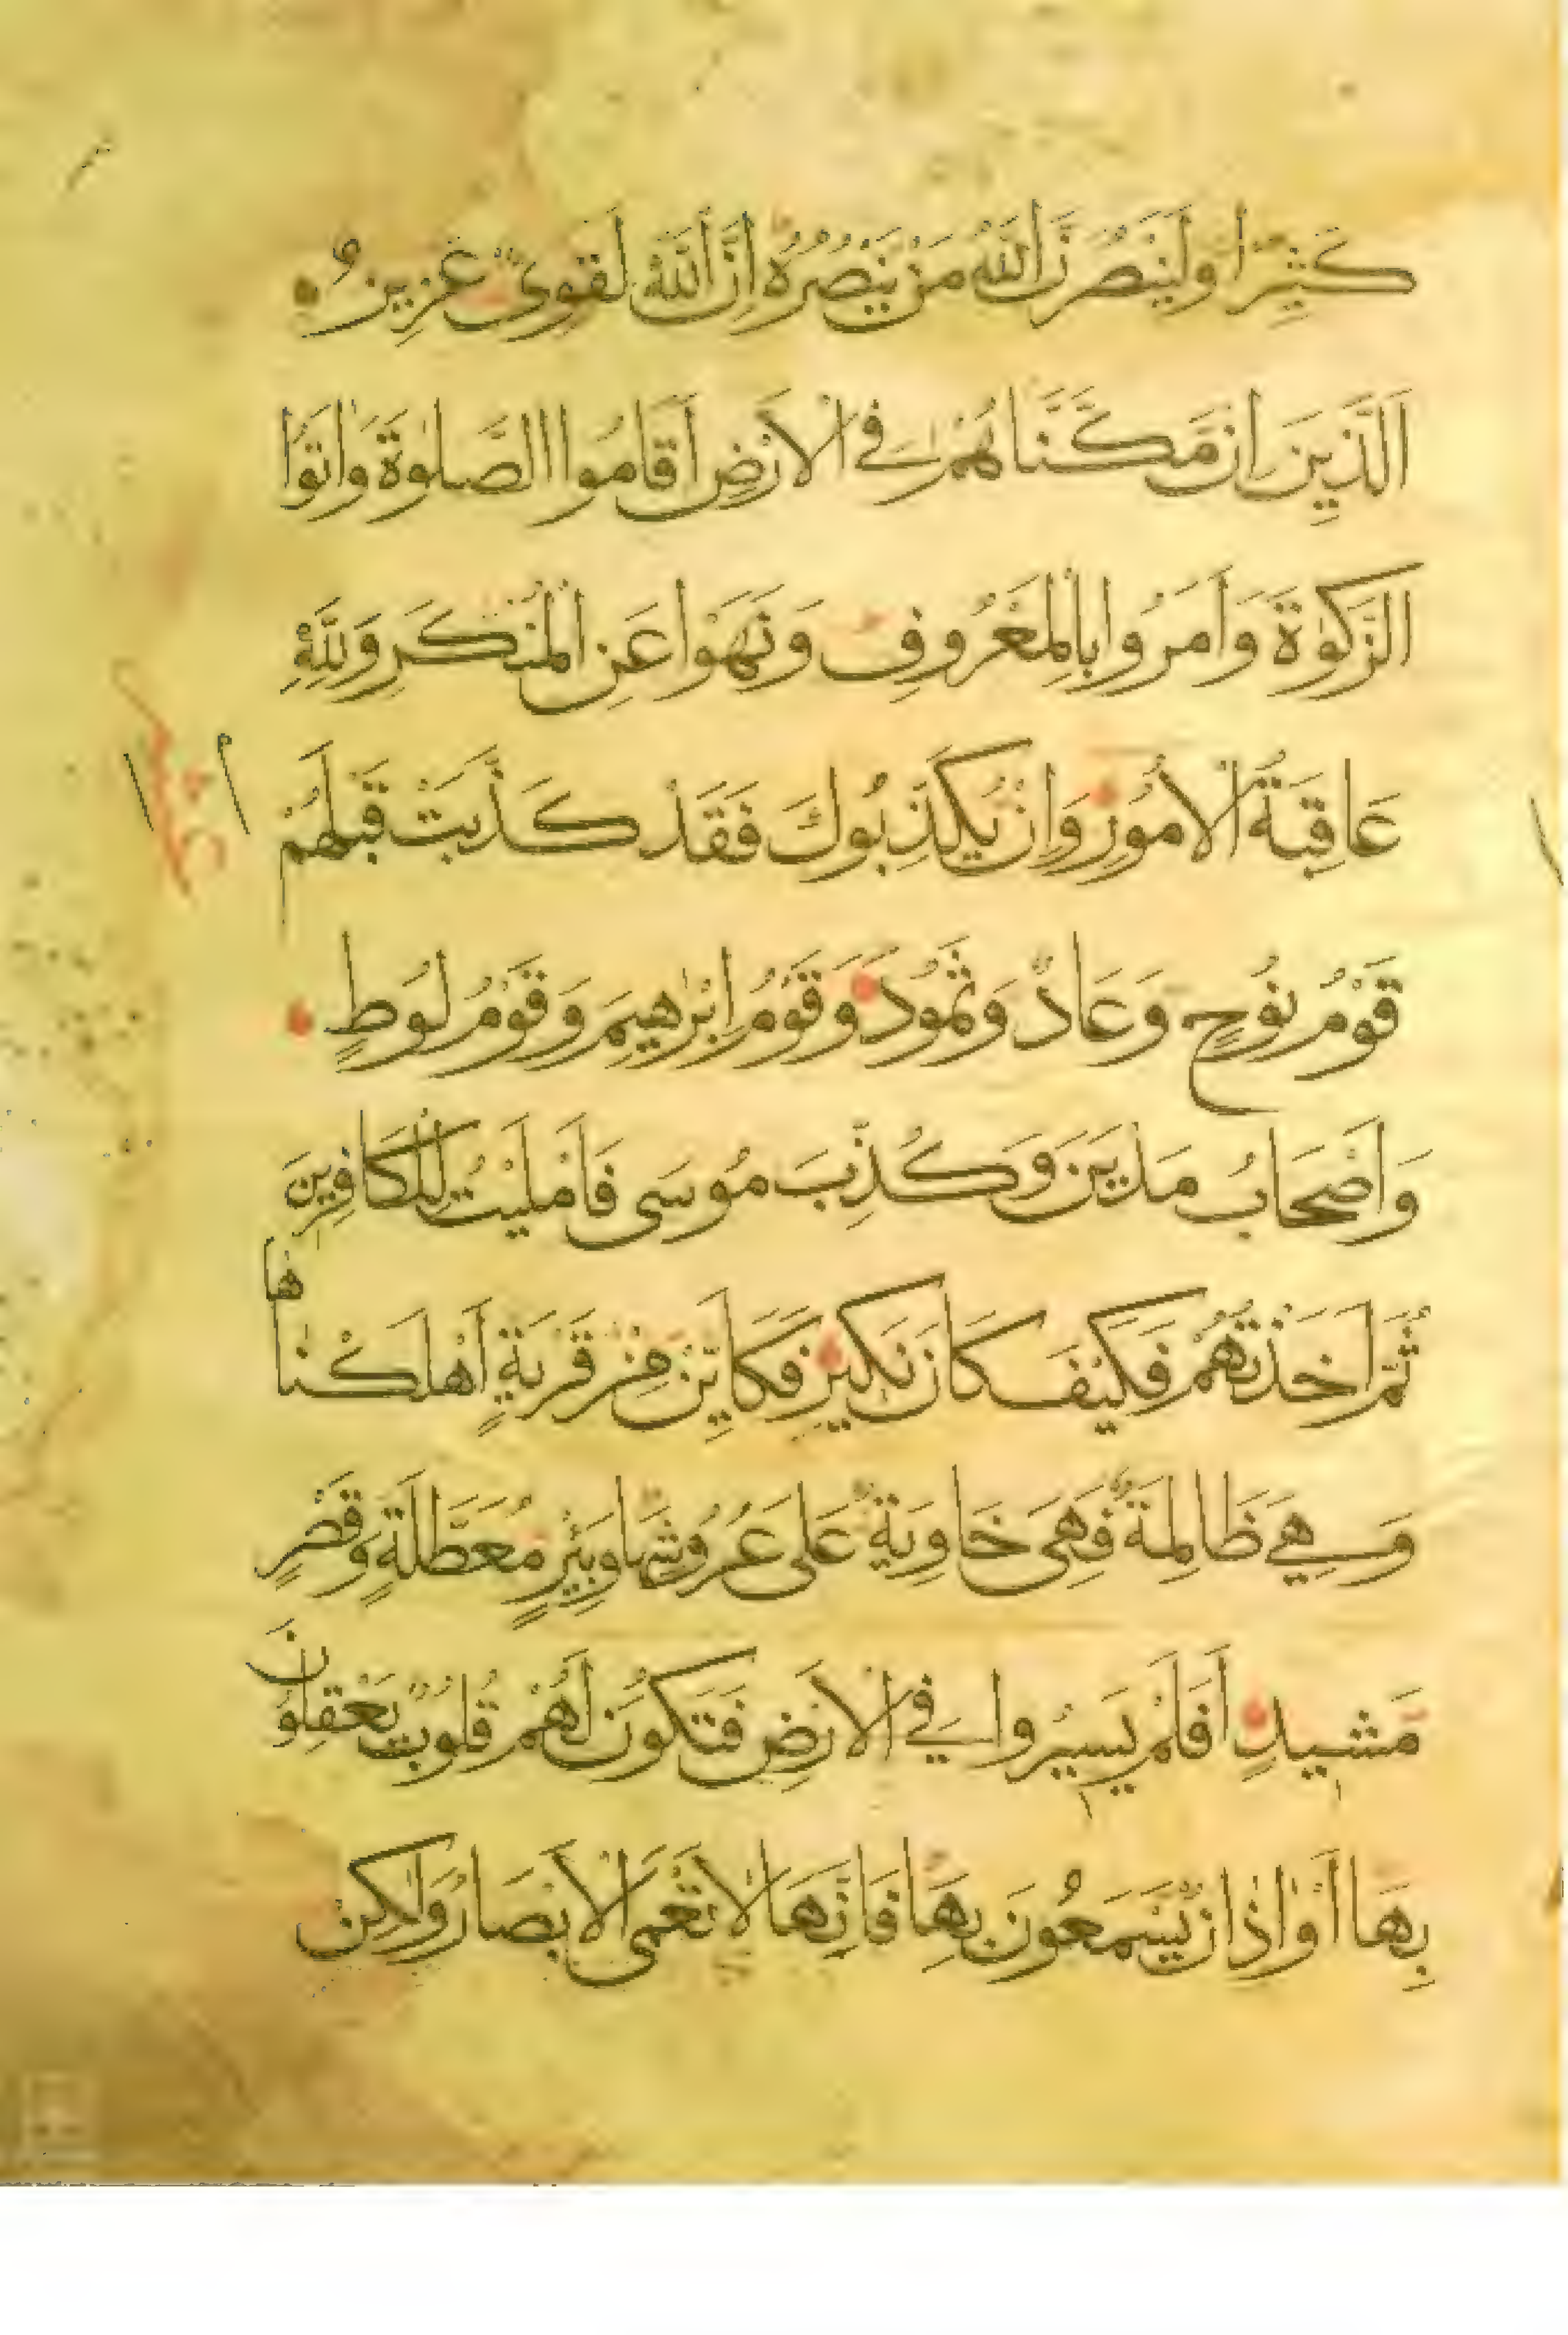 كَثِيرًا وَلَيَنْصُرَنَّ اللَّهُ مَنْ يَنْصُرُهُ إِنَّ اللَّهَ لَقَوِىٌّ عَزِيزٌ
اَلَّذِينَ اِنْ مَكَّنَّاهُمْ فِي الْاَرْضِ اَقَامُوا الصَّلٰوةَ وَاٰتَوُا
الزَّكٰوةَ وَاَمَرُوا بِالْمَعْرُوفِ وَنَهَوْا عَنِ الْمُنْكَرِ وَلِلّٰهِ
عَاقِبَةُ الْاُمُورِ وَاِنْ يُكَذِّبُوكَ فَقَدْ كَذَّبَتْ قَبْلَهُمْ
قَوْمُ نُوحٍ وَعَادٌ وَثَمُودُ وَقَوْمُ اِبْرٰهِيمَ وَقَوْمُ لُوطٍ
وَاَصْحَابُ مَدْيَنَ وَكُذِّبَ مُوسَى فَاَمْلَيْتُ لِلْكَافِرِينَ
ثُمَّ اَخَذْتُهُمْ فَكَيْفَ كَانَ نَكِيرِ فَكَاَيِّنْ مِنْ قَرْيَةٍ اَهْلَكْنَاهَا
وَهِيَ ظَالِمَةٌ فَهِىَ خَاوِيَةٌ عَلَى عُرُوشِهَا وَبِئْرٍ مُعَطَّلَةٍ وَقَصْرٍ
مَشِيدٍ اَفَلَمْ يَسِيرُوا فِي الْاَرْضِ فَتَكُونَ لَهُمْ قُلُوبٌ يَعْقِلُونَ
بِهَا اَوْ اٰذَانٌ يَسْمَعُونَ بِهَا فَاِنَّهَا لَا تَعْمَى الْاَبْصَارُ وَلٰكِنْ